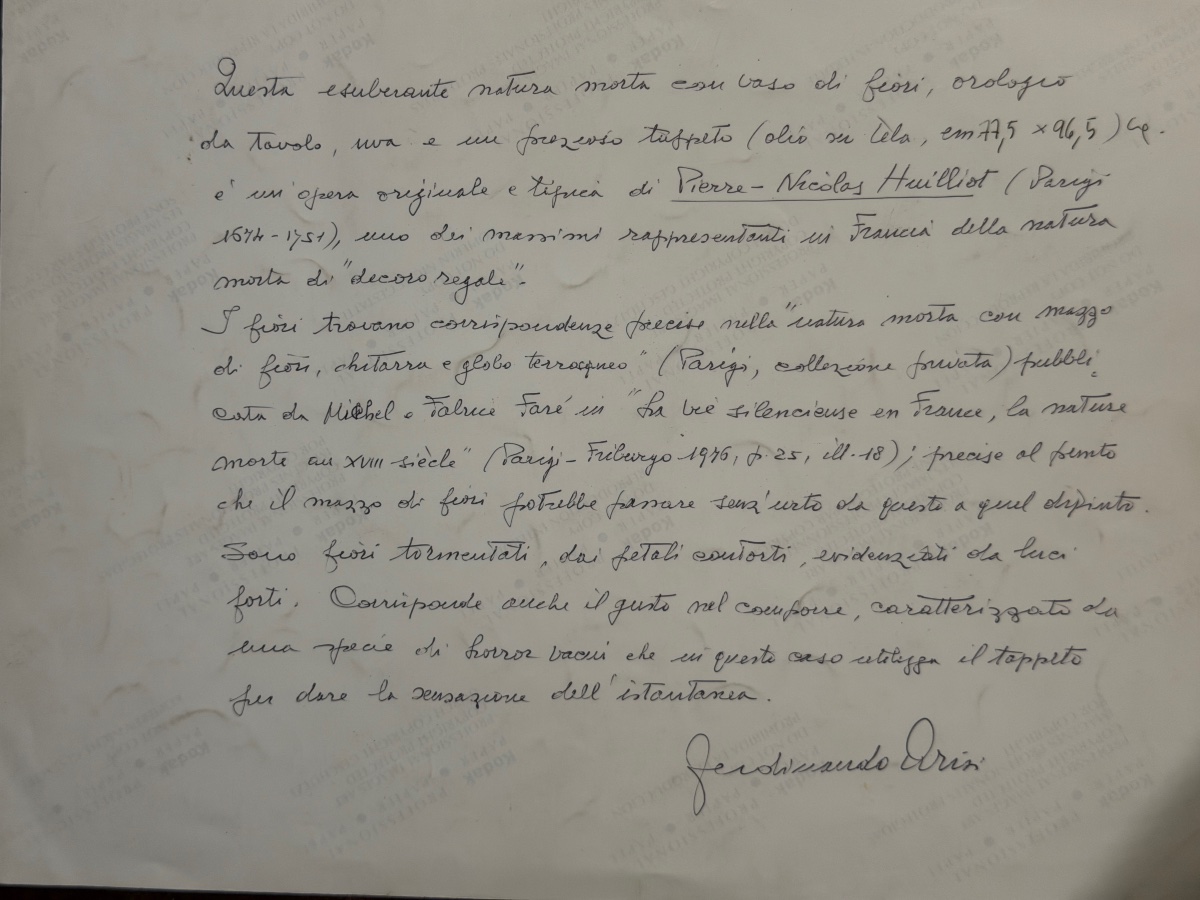 Questa esuberante natura morta con vaso di fiori, orologio
da tavolo, uva e un prezioso tappeto (olio su tela, cm 77,5 × 96,5)
è un'opera originale e tipica di Pierre-Nicolas Huilliot (Parigi
1674-1751), uno dei massimi rappresentanti in Francia della natura
morta di "decoro regale".
I fiori trovano corrispondenze precise nella "natura morta con mazzo
di fiori, chitarra e globo terracqueo" (Parigi, collezione privata) pubbli=
cata da Michel e Fabrice Faré in "La vie silencieuse en France, la nature
morte au XVIII siècle" (Parigi-Friburgo 1976, p. 25, ill. 18); precise al punto
che il mazzo di fiori potrebbe passare senz'urto da questo a quel dipinto.
Sono fiori tormentati, dai petali contorti, evidenziati da luci
forti. Corrisponde anche il gusto nel comporre, caratterizzato da
una specie di horror vacui che in questo caso utilizza il tappeto
per dare la sensazione dell'istantanea.
Ferdinando Arisi
Kodak